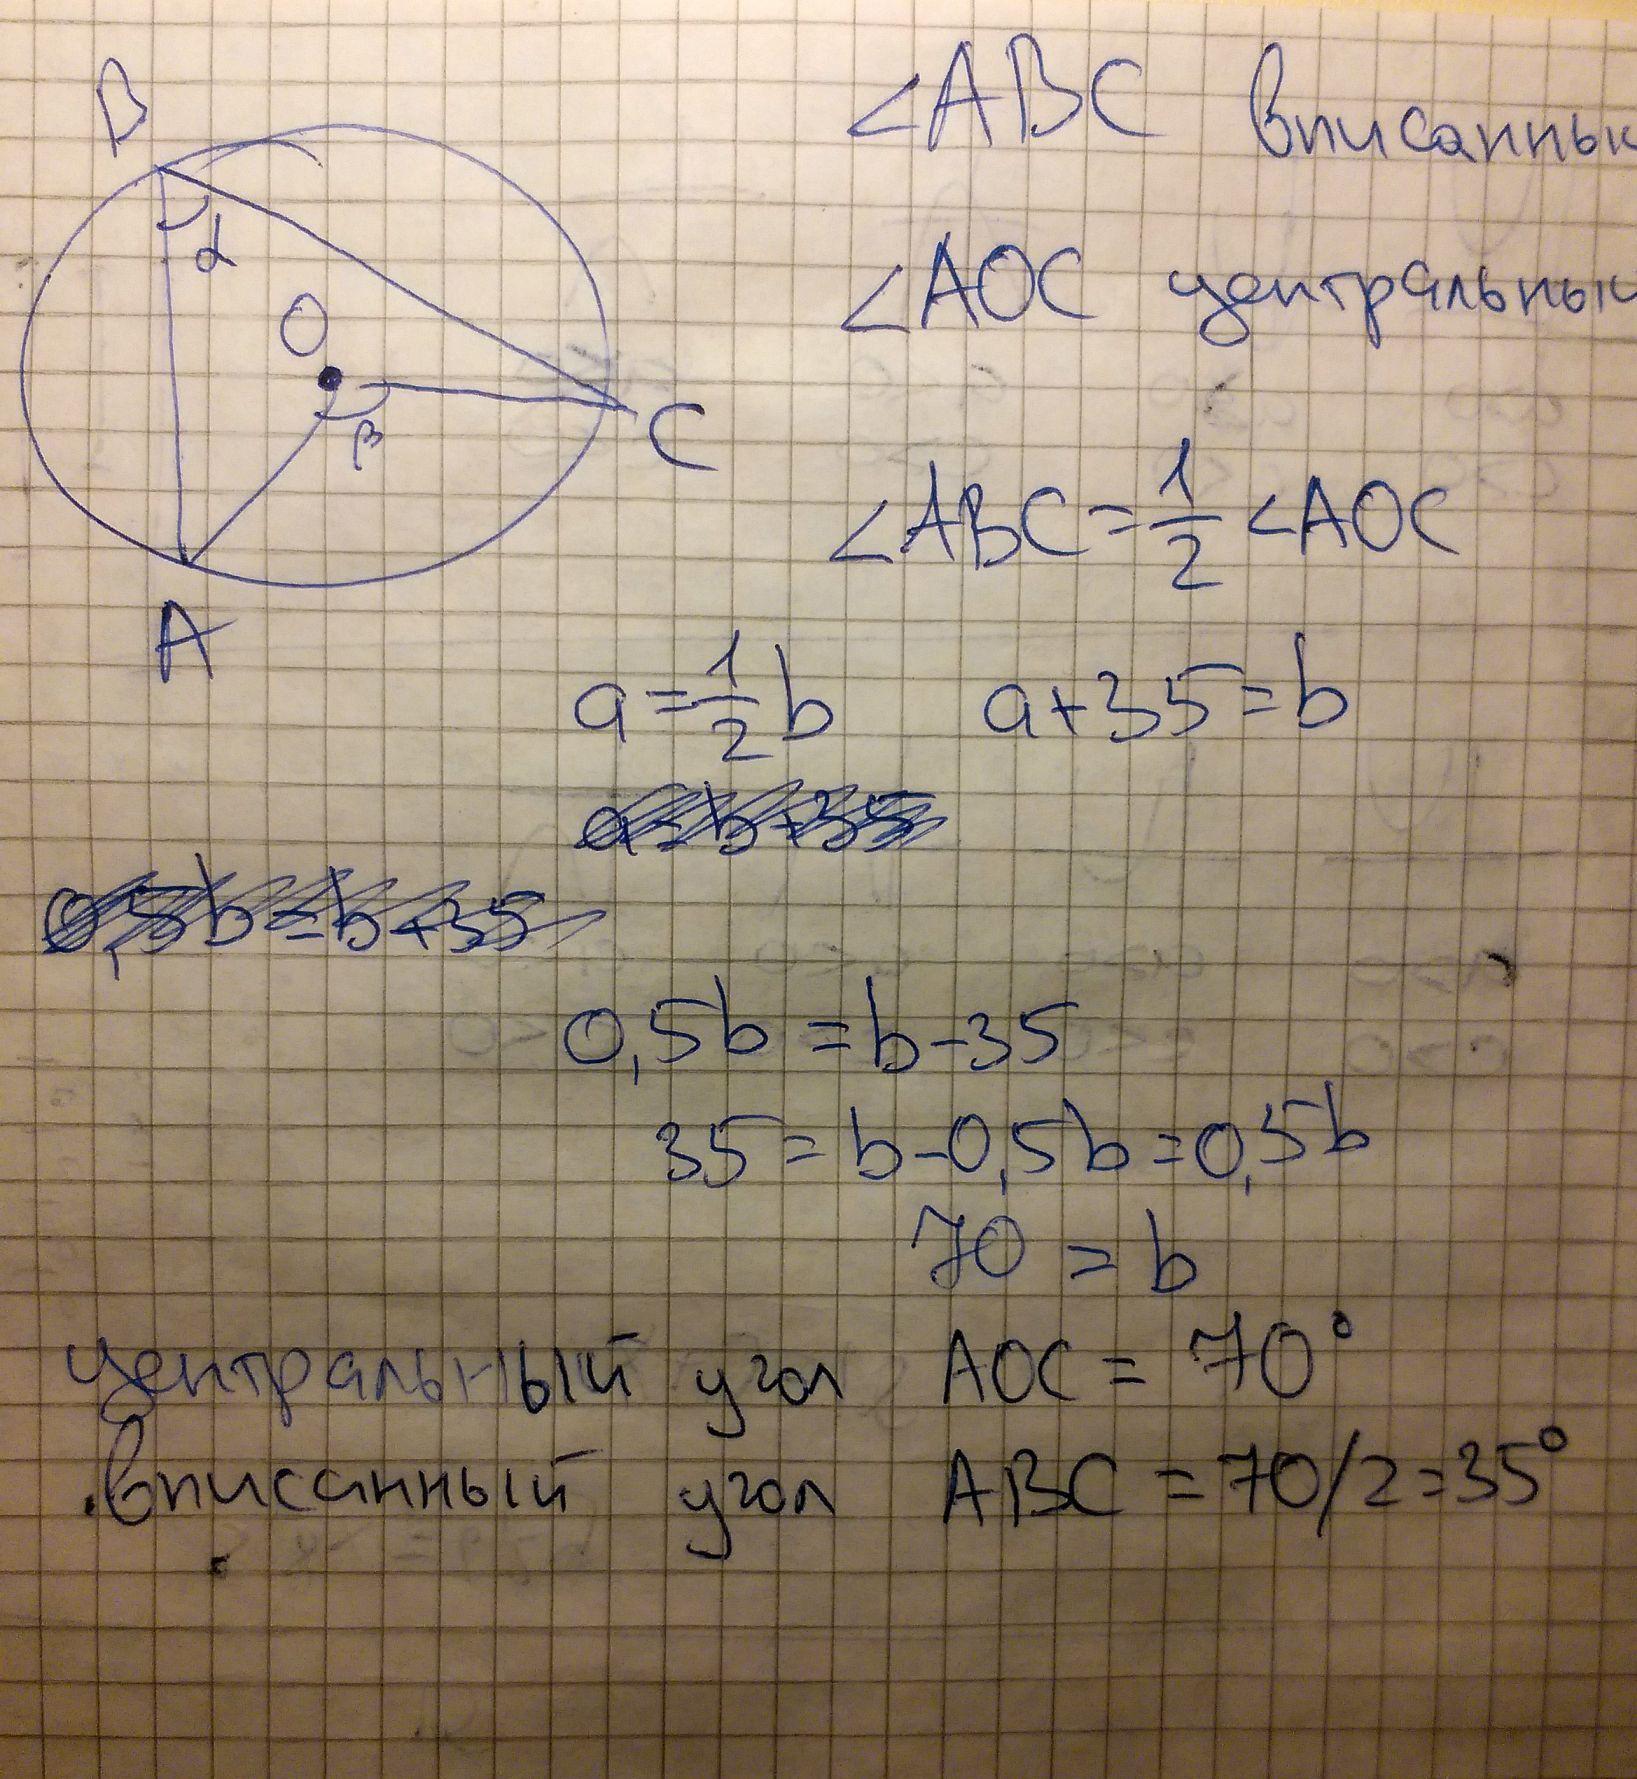 B
∠ABC вписанны
α
∠AOC центральны
O
β
C
∠ABC = 1/2 ∠AOC
A
a = 1/2 b a+35=b
a=b+35
0,5b=b+35
0,5b = b-35
35 = b-0,5b = 0,5b
70 = b
центральный угол AOC = 70°
вписанный угол ABC = 70/2 = 35°